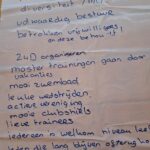 diversiteit
volwaardig bestuur
betrokken vrijwilligers,
en deze behou-t
24D organiseren
master trainingen gaan door
vakanties
mooi zwembad
leuke wedstrijden
actieve vereniging
mooie clubshirts
lieve trainers
iedereen is welkom niveau
leden die lang blijven